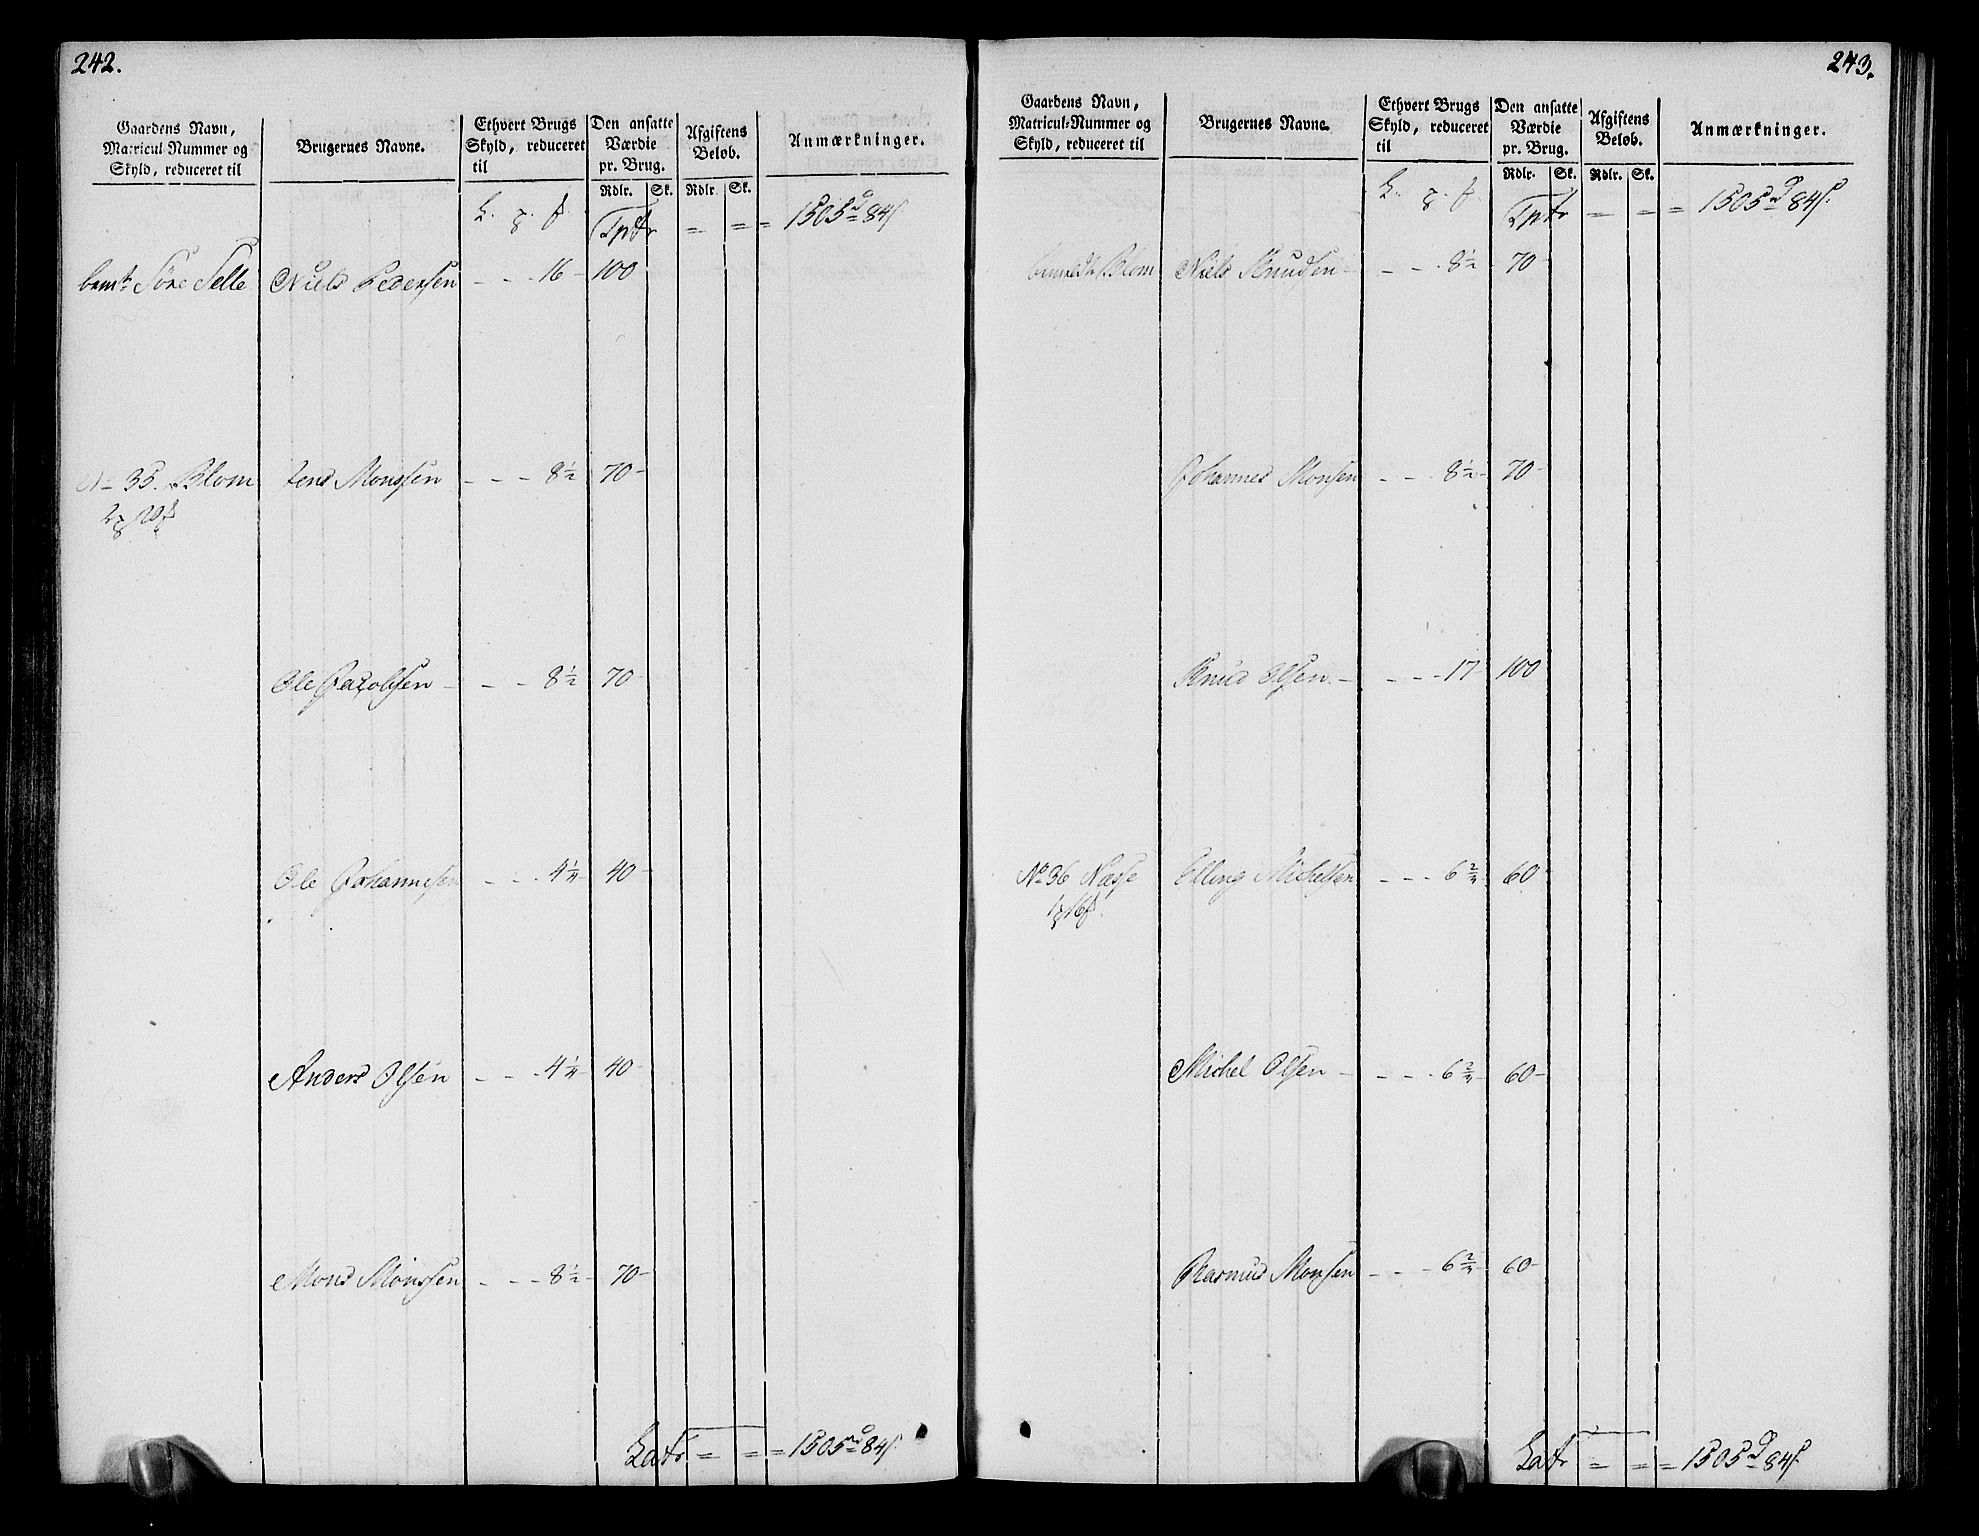 242.
Gaardens Navn,
Matricul-Nummer og
Skyld, reduceret til
Brugernes Navne.
Ethvert Brugs
Skyld, reduceret
til
Den ansatte
Værdie
pr. Brug.
Afgiftens
Beløb.
Anmærkninger.
Rdlr. Sk. Rdlr. Sk.
Tptr = = = 1505 84
Niels Pedersen - - - 16 - 100
No 35. Blom Jens Monssen - - - 8 1/2 70 -
Ole Jacobsen - - - 8 1/2 70 -
Ole Johannesen - - - 4 1/4 40 -
Anders Olsen - - - 4 1/4 40 -
Mons Monssen - - - 8 1/2 70 -
Latr = = = 1505 84
243.
Gaardens Navn,
Matricul-Nummer og
Skyld, reduceret til
Brugernes Navne.
Ethvert Brugs
Skyld, reduceret
til
Den ansatte
Værdie
pr. Brug.
Afgiftens
Beløb.
Anmærkninger.
Rdlr. Sk. Rdlr. Sk.
Tptr = = = 1505 84
Blom Niels Knudsen - - - 8 1/2 - 70 -
Johannes Monsen - - - 8 1/2 - 70 -
Knud Olsen - - - - 17 - 100
No 36 Næsse Elling Michelsen - - - 6 2/4 60 -
Michel Olsen - - - - 6 2/4 60 -
Rasmus Monsen - - - 6 2/4 60 -
Latr = = = 1505 84